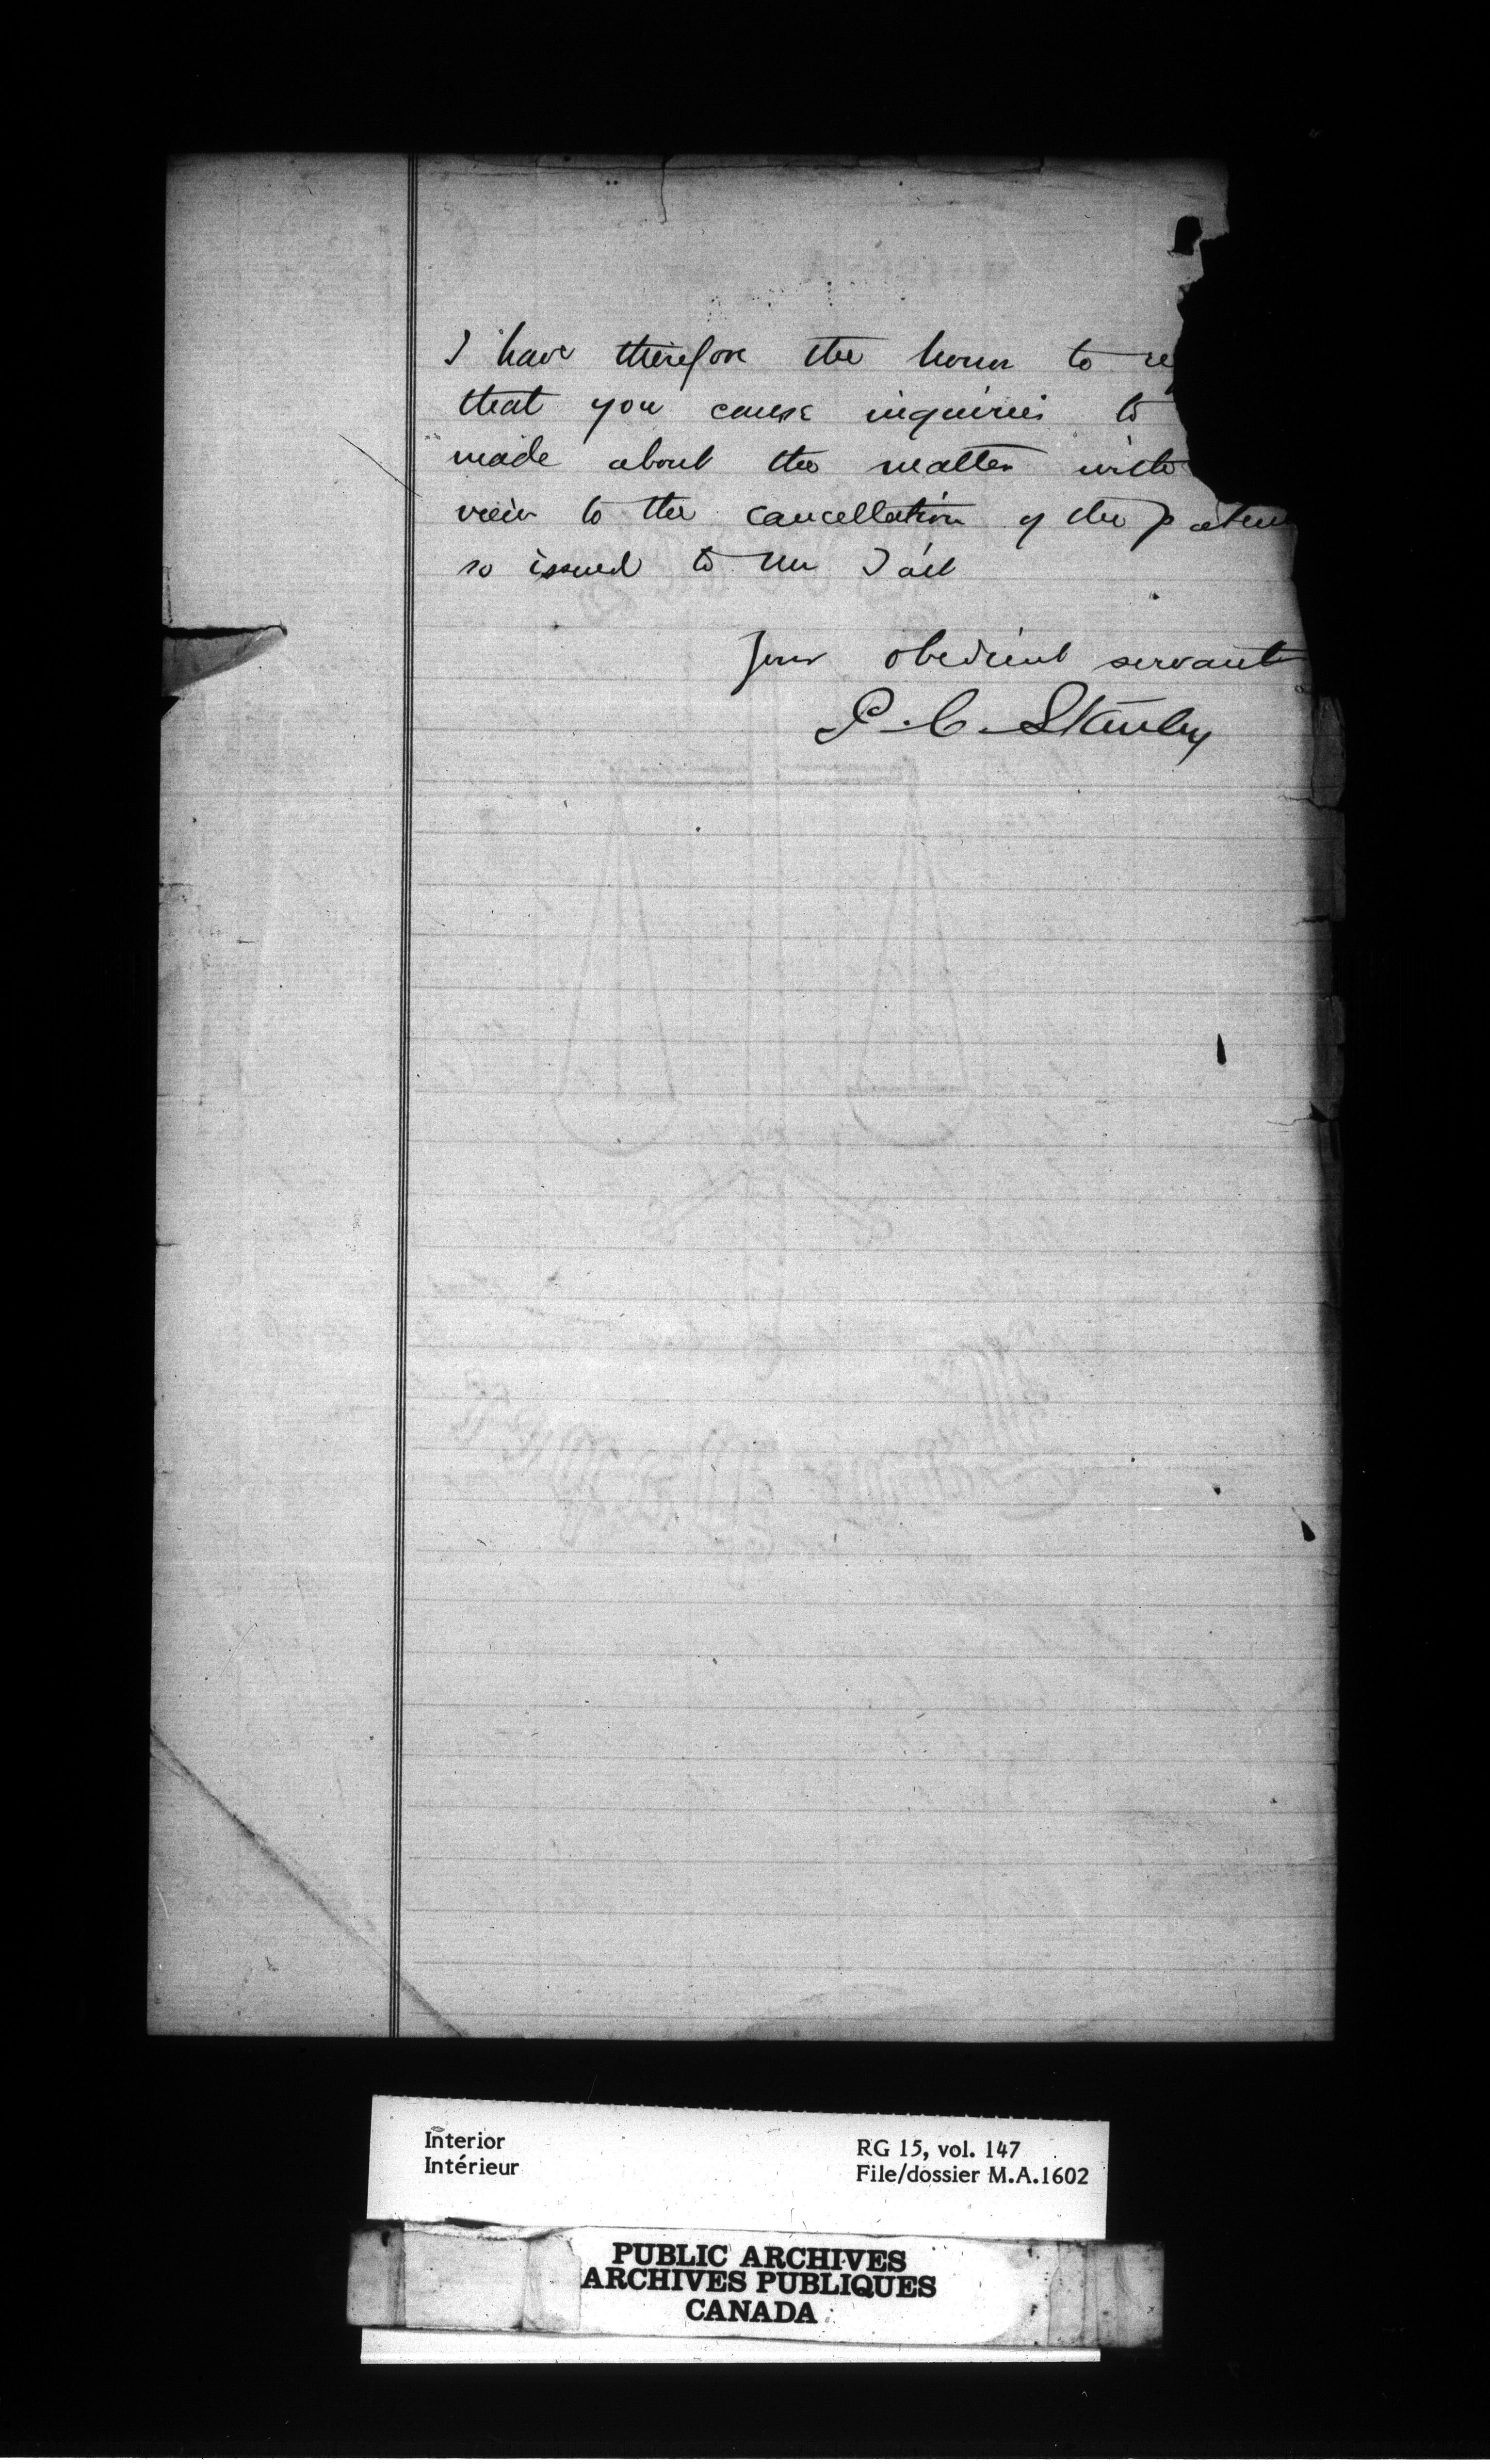 I have therefore the honor to re
that you cause inquiries to
made about the matter with
view to the cancellation of the paten
so issued to Mr Tait
Your obedient servant
P. C. Stanley
Interior
Intérieur
RG 15, vol. 147
File/dossier M.A.1602
PUBLIC ARCHIVES
ARCHIVES PUBLIQUES
CANADA